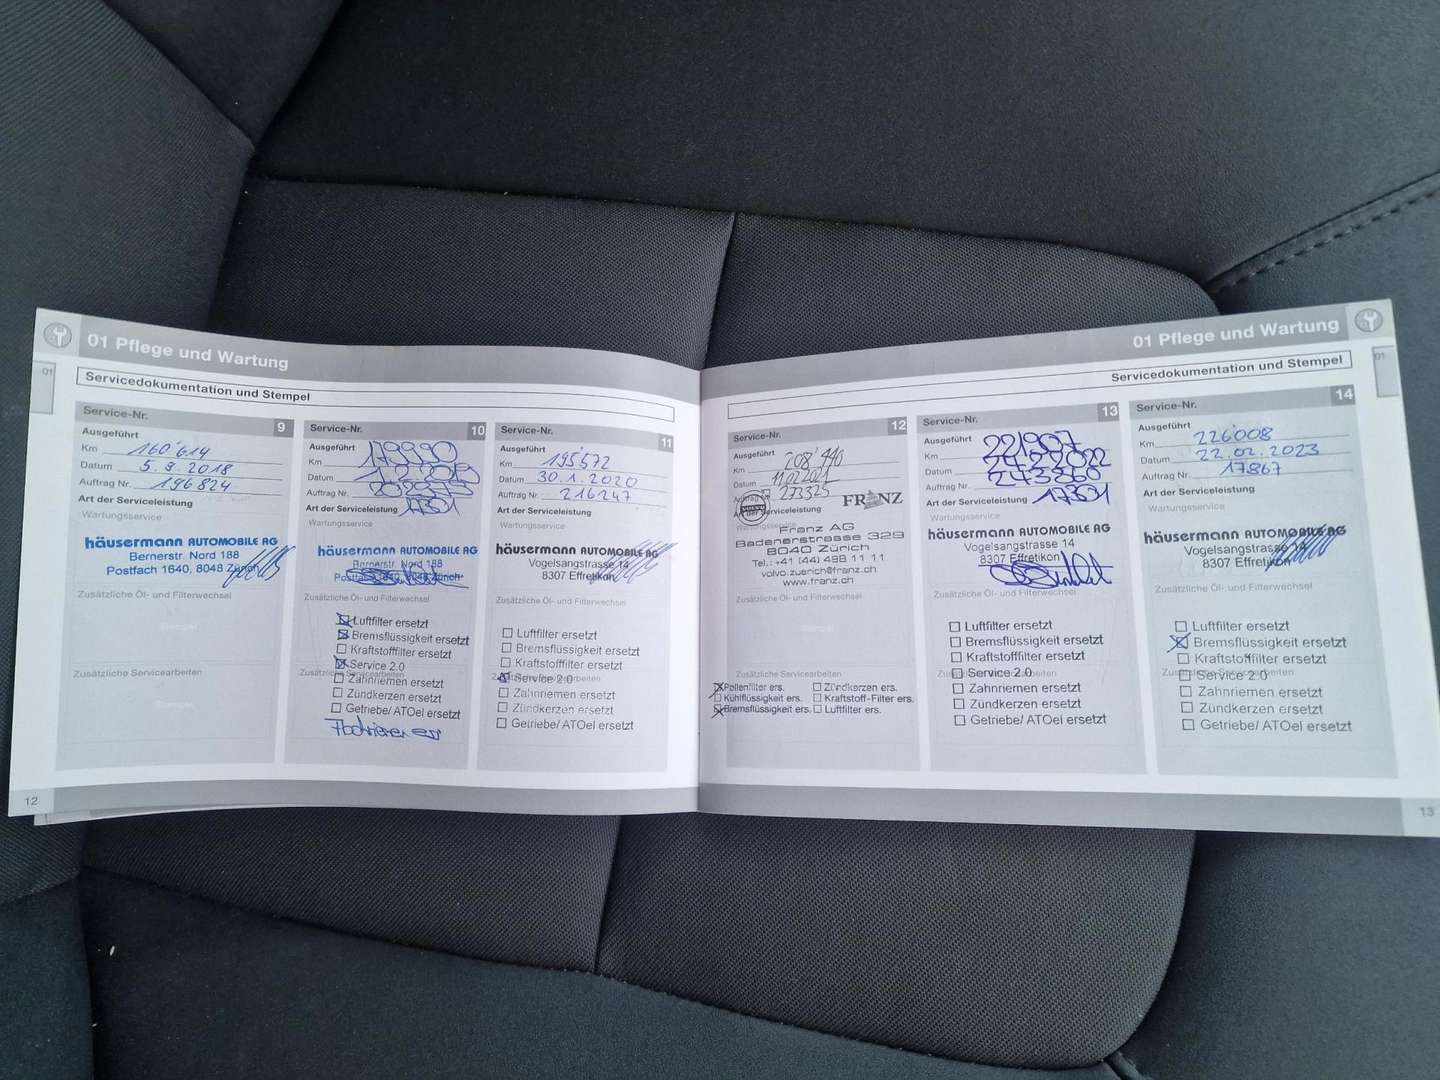 01 Pflege und Wartung
01
Servicedokumentation und Stempel
Service-Nr. 9
Ausgeführt
Km 160'614
Datum 5.9.2018
Auftrag Nr. 196824
Art der Serviceleistung
Wartungsservice
häusermann AUTOMOBILE AG
Bernerstr. Nord 188
Postfach 1640, 8048 Zürich
Zusätzliche Öl- und Filterwechsel
Stempel
Zusätzliche Servicearbeiten
Stempel
Service-Nr. 10
Ausgeführt
Km 179990
Datum
Auftrag Nr.
Art der Serviceleistung 17301
Wartungsservice
häusermann AUTOMOBILE AG
Bernerstr. Nord 188
Postfach 1640, 8048 Zürich
Zusätzliche Öl- und Filterwechsel
Luftfilter ersetzt
Bremsflüssigkeit ersetzt
Kraftstofffilter ersetzt
Service 2.0
Zusätzliche Servicearbeiten
Zahnriemen ersetzt
Zündkerzen ersetzt
Getriebe/ ATOel ersetzt
Service-Nr. 11
Ausgeführt
Km 195'572
Datum 30.1.2020
Auftrag Nr. 216247
Art der Serviceleistung
Wartungsservice
häusermann AUTOMOBILE AG
Vogelsangstrasse 14
8307 Effretikon
Zusätzliche Öl- und Filterwechsel
Luftfilter ersetzt
Bremsflüssigkeit ersetzt
Kraftstofffilter ersetzt
Service 2.0
Zusätzliche Servicearbeiten
Zahnriemen ersetzt
Zündkerzen ersetzt
Getriebe/ ATOel ersetzt
12
01 Pflege und Wartung
01
Servicedokumentation und Stempel
Service-Nr. 12
Ausgeführt
Km 208'440
Datum 11.02.2021
Auftrag Nr. 273325
Art der Serviceleistung
FRANZ
Wartungsservice
Franz AG
Badenerstrasse 329
8040 Zürich
Tel.: +41 (44) 498 11 11
volvo.zuerich@franz.ch
www.franz.ch
Zusätzliche Öl- und Filterwechsel
Stempel
Zusätzliche Servicearbeiten
Pollenfilter ers. Zündkerzen ers.
Kühlflüssigkeit ers. Kraftstoff-Filter ers.
Bremsflüssigkeit ers. Luftfilter ers.
Service-Nr. 13
Ausgeführt
Km 221907
Datum
Auftrag Nr. 243860
Art der Serviceleistung 17301
Wartungsservice
häusermann AUTOMOBILE AG
Vogelsangstrasse 14
8307 Effretikon
Zusätzliche Öl- und Filterwechsel
Luftfilter ersetzt
Bremsflüssigkeit ersetzt
Kraftstofffilter ersetzt
Service 2.0
Zusätzliche Servicearbeiten
Zahnriemen ersetzt
Zündkerzen ersetzt
Getriebe/ ATOel ersetzt
Service-Nr. 14
Ausgeführt
Km 226'008
Datum 22.02.2023
Auftrag Nr. 17867
Art der Serviceleistung
Wartungsservice
häusermann AUTOMOBILE AG
Vogelsangstrasse 14
8307 Effretikon
Zusätzliche Öl- und Filterwechsel
Luftfilter ersetzt
Bremsflüssigkeit ersetzt
Kraftstofffilter ersetzt
Service 2.
Zusätzliche Servicearbeiten
Zahnriemen ersetzt
Zündkerzen ersetzt
Getriebe/ ATOel ersetzt
13